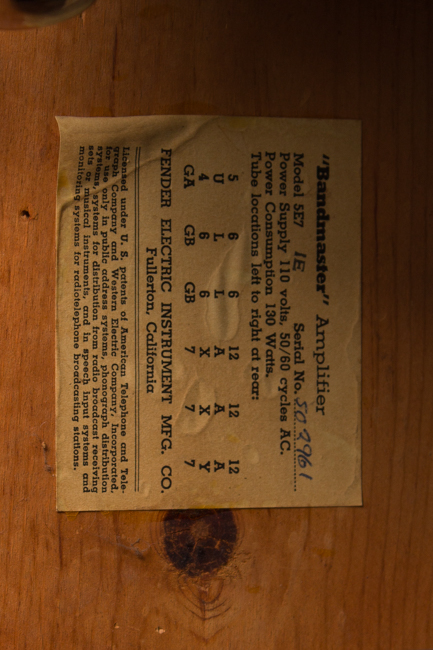 "Bandmaster" Amplifier
Model 5E7 IE Serial No. S02961
Power Supply 110 volts, 50/60 cycles AC.
Power Consumption 130 Watts.
Tube locations left to right at rear:
5 6 6 12 12 12
U L L A A A
4 6 6 X X Y
GA GB GB 7 7 7
FENDER ELECTRIC INSTRUMENT MFG. CO.
Fullerton, California
Licensed under U. S. patents of American Telephone and Tele-
graph Company and Western Electric Company, Incorporated,
for use only in public address systems, phonograph distribution
systems, systems for distribution from radio broadcast receiving
sets or musical instruments, and in speech input systems and
monitoring systems for radiotelephone broadcasting stations.